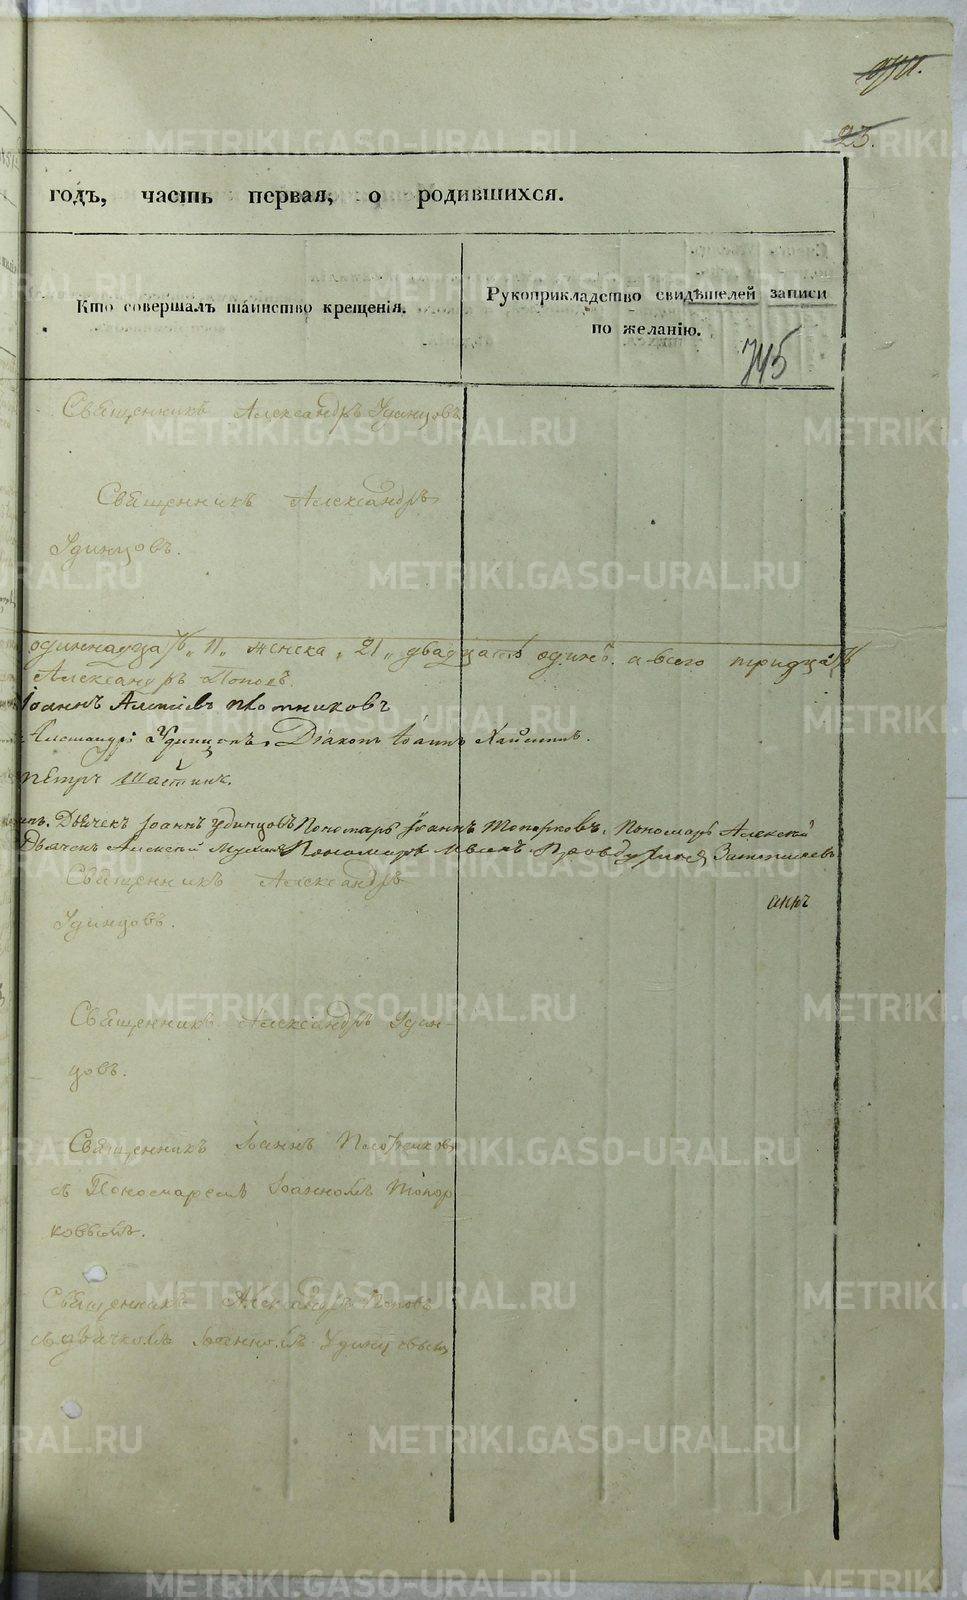 23.
годъ, часть первая, о родившихся.
Кто совершалъ таинство крещенія.
Рукоприкладство свидѣтелей записи
по желанію.
745
Священникъ Александръ Удинцовъ
Священникъ Александръ
Удинцовъ.
одиннадцать „11„ женска „21„ двадцать одинъ. а всего тридцать
Александръ Поповъ.
Іоаннъ Плотниковъ
Удинцовъ. Діаконъ Іоаннъ
Петръ
Дьячекъ Іоаннъ Удинцовъ Пономарь Іоаннъ Топорковъ. Пономарь Алексій
Дьячекъ Алексій Пономарь
Священникъ Александръ
Удинцовъ.
Священникъ Александръ Удин-
цовъ.
Священникъ Іоаннъ Плотниковъ
съ Пономаремъ Іоанномъ Топор-
ковымъ.
Священникъ Александръ Поповъ
съ дьячкомъ Іоанномъ Удинцовымъ
METRIKI.GASO-URAL.RU